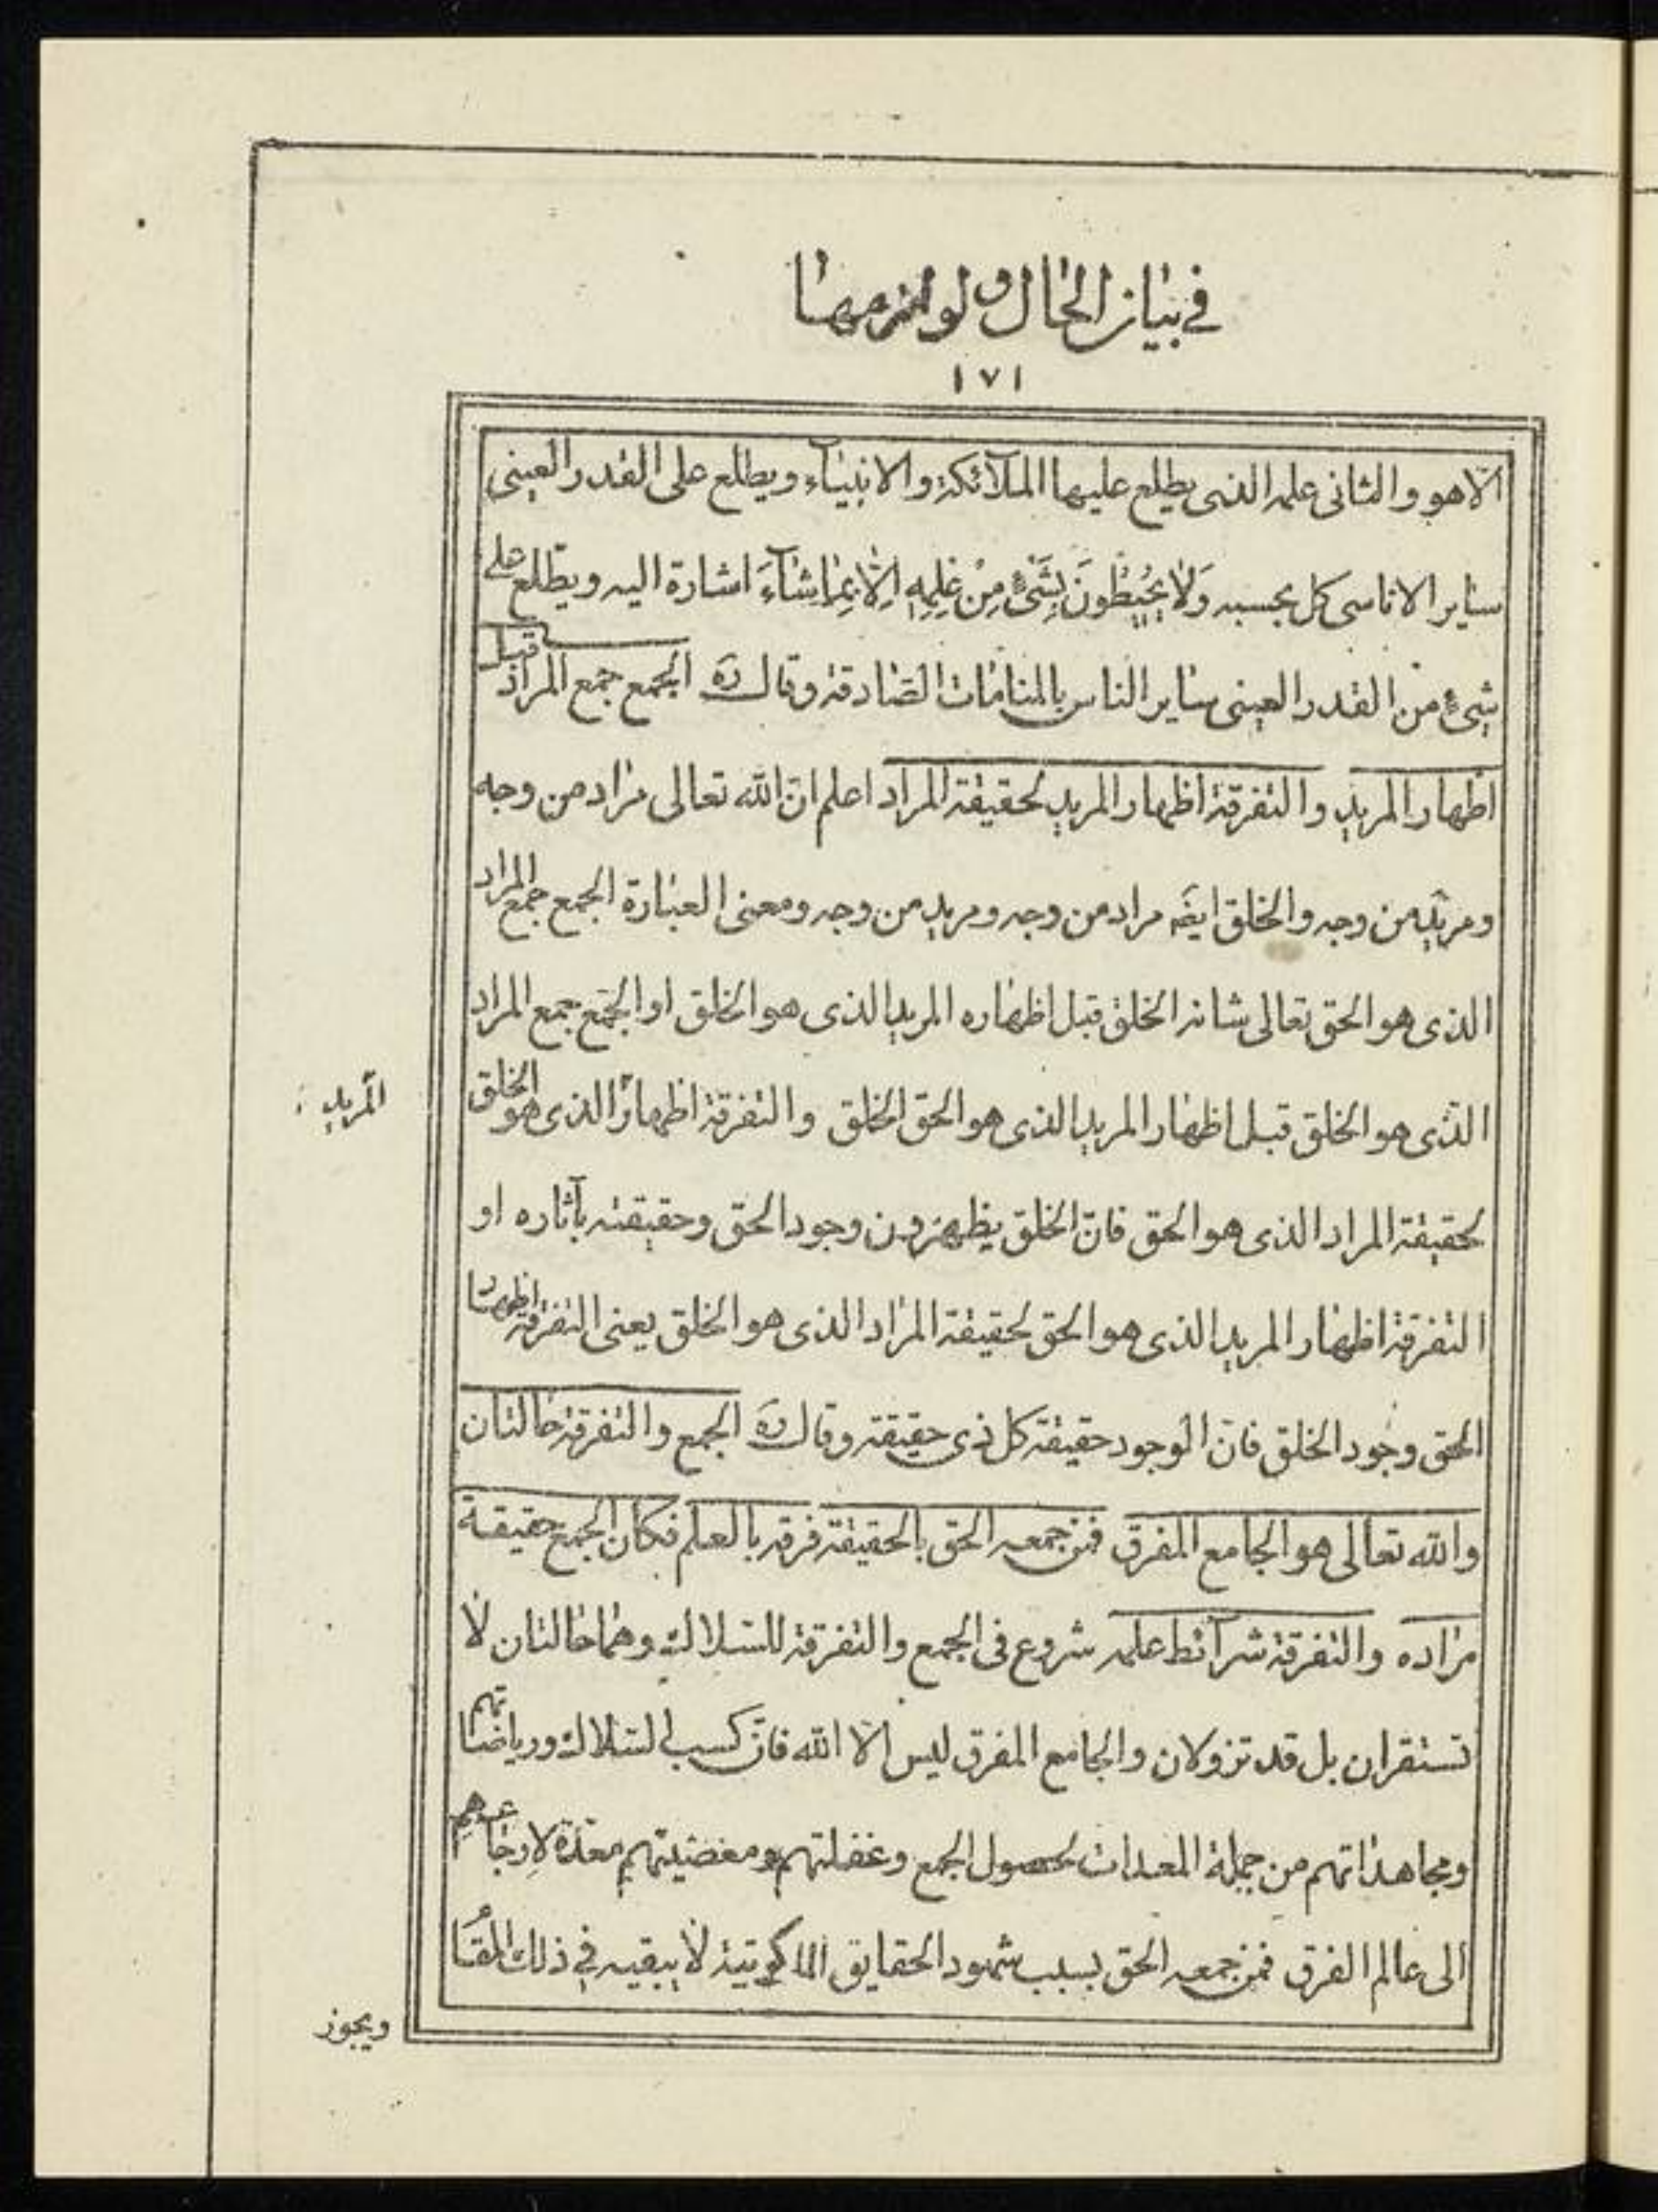 في بيان الحال و لوازمها
١٧١
الّا هو والثانى علمه الذى يطلع عليها الملآئكة والانبيآء ويطلع على القدر العينى
ساير الاناسى كل بحسبه وَلا يُحيطُونَ بِشَىْءٍ مِنْ عِلِمِهِ اِلّا بِمٰا شٰآءَ اشارة اليه ويطّلع على
شىءٍ من القدر العينى ساير الناس بالمنامات الصّادقة وقال ره الجمع جمع المراد قبل
اظهار المريد والتفرقة اظهار المريد لحقيقة المراد اعلم انّ الله تعالى مراد من وجه
ومريد من وجه والخلق ايضَ مراد من وجه ومريد من وجه ومعنى العبارة الجمع جمع المراد
الذى هو الحق تعالى شانه الخلق قبل اظهاره المريد الذى هو الخلق او الجمع جمع المراد
الذى هو الخلق قبل اظهار المريد الذى هو الحق الخلق والتفرقة اظهار الذى هو الخلق
المريد
لحقيقة المراد الذى هو الحق فانّ الخلق يظهرون وجود الحق وحقيقته بآثاره او
التفرقة اظهار المريد الذى هو الحق لحقيقة المراد الذى هو الخلق يعنى التفرقة اظهار
الحق وجود الخلق فانّ الوجود حقيقة كل ذى حقيقة وقال ره الجمع والتفرقة حالتان
والله تعالى هو الجامع المفرق فمن جمعه الحق بالحقيقة فرقه بالعلم فكان الجمع حقيقة
مراده والتفرقة شرآئط علمه شروع فى الجمع والتفرقة للسلاك وهما حالتان لا
تستقران بل قد تزولان والجامع المفرق ليس الّا الله فانّ كسب السلاك ورياضاتهم
ومجاهداتهم من جملة المعدات لحصول الجمع وغفلتهم ومعصيتهم معدّة لارجاعهم
الى عالم الفرق فمن جمعه الحق بسبب شهود الحقايق الملكوتية لا يبقيه في ذلك المقا
ويجوز